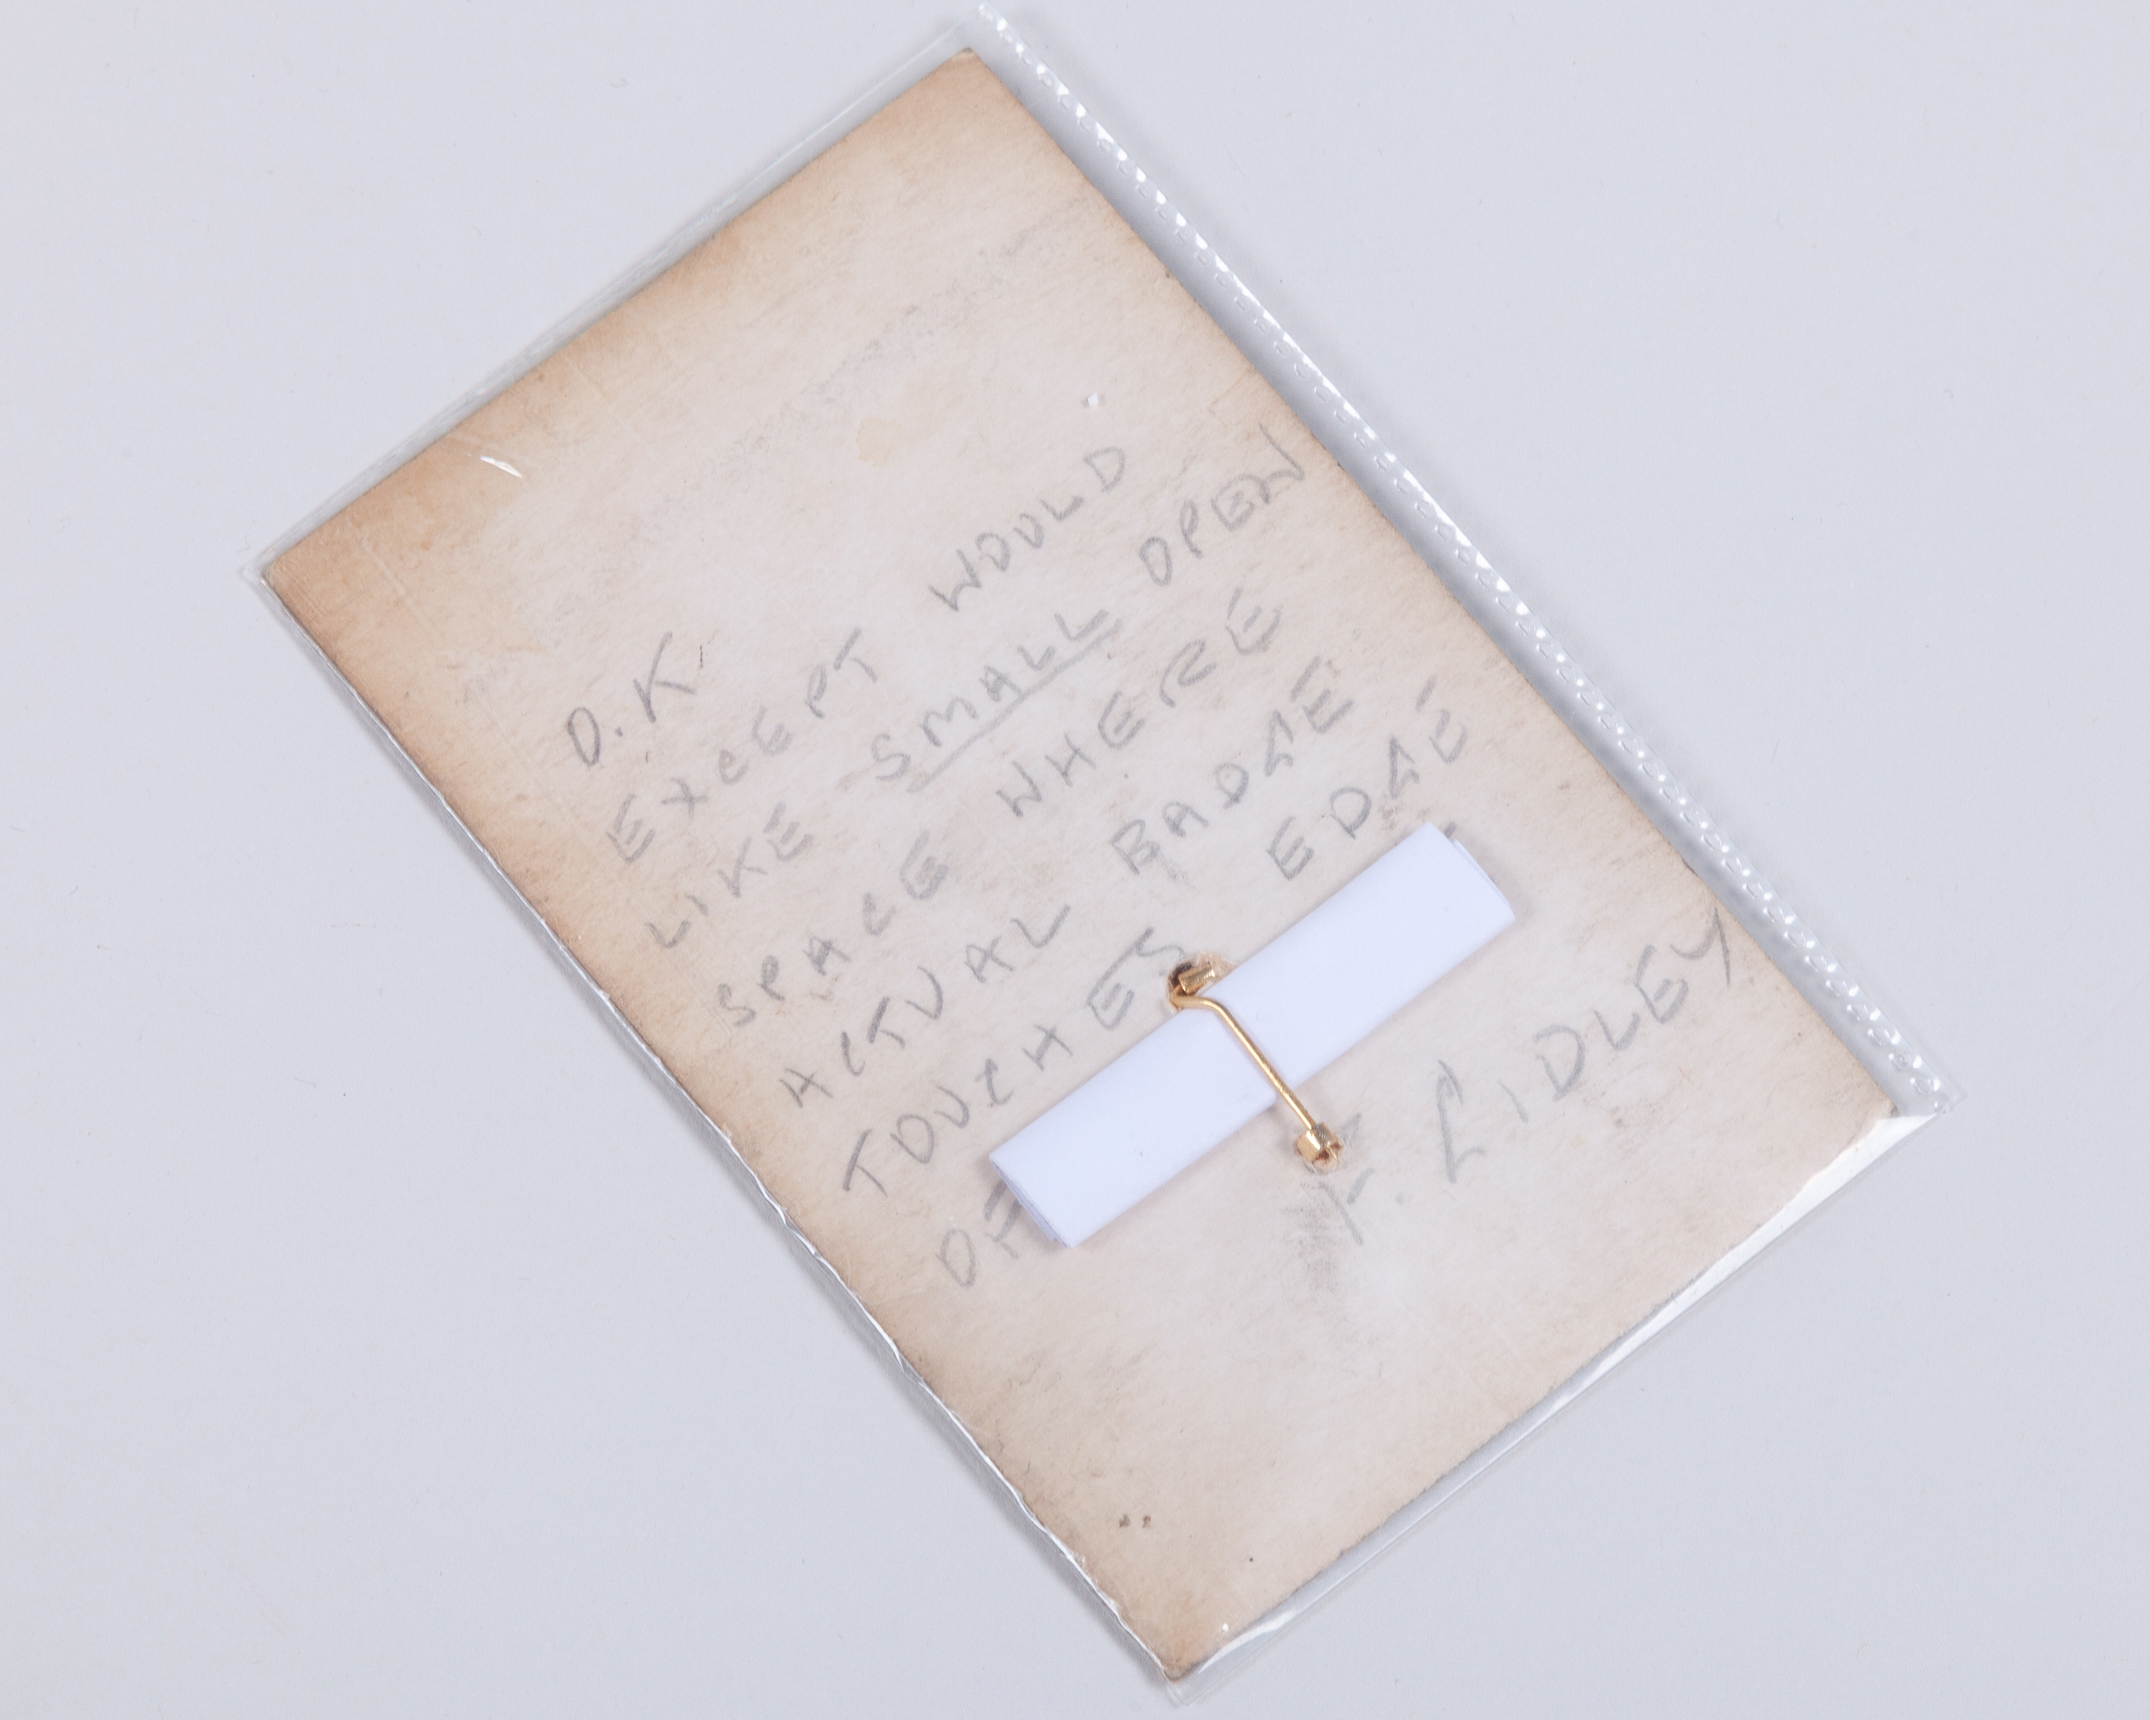 O.K.
EXCEPT WOULD
LIKE SMALL OPEN
SPACE WHERE
ACTUAL BADGE
TOUCHES EDGE
OF
GIDLEY